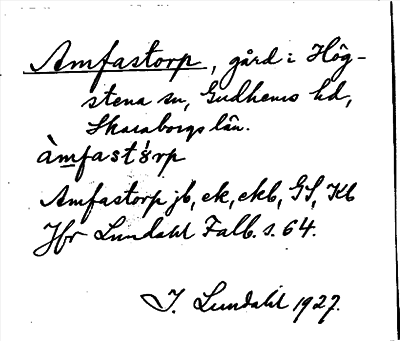 Amfastorp, gård i Hög-
stena sn, Gudhems hd,
Skaraborgs län.
àmfastórp
Amfastorp jb, ek, ekb, GS, Kb
Jfr Lundahl Falb. s. 64.
I. Lundahl 1927.